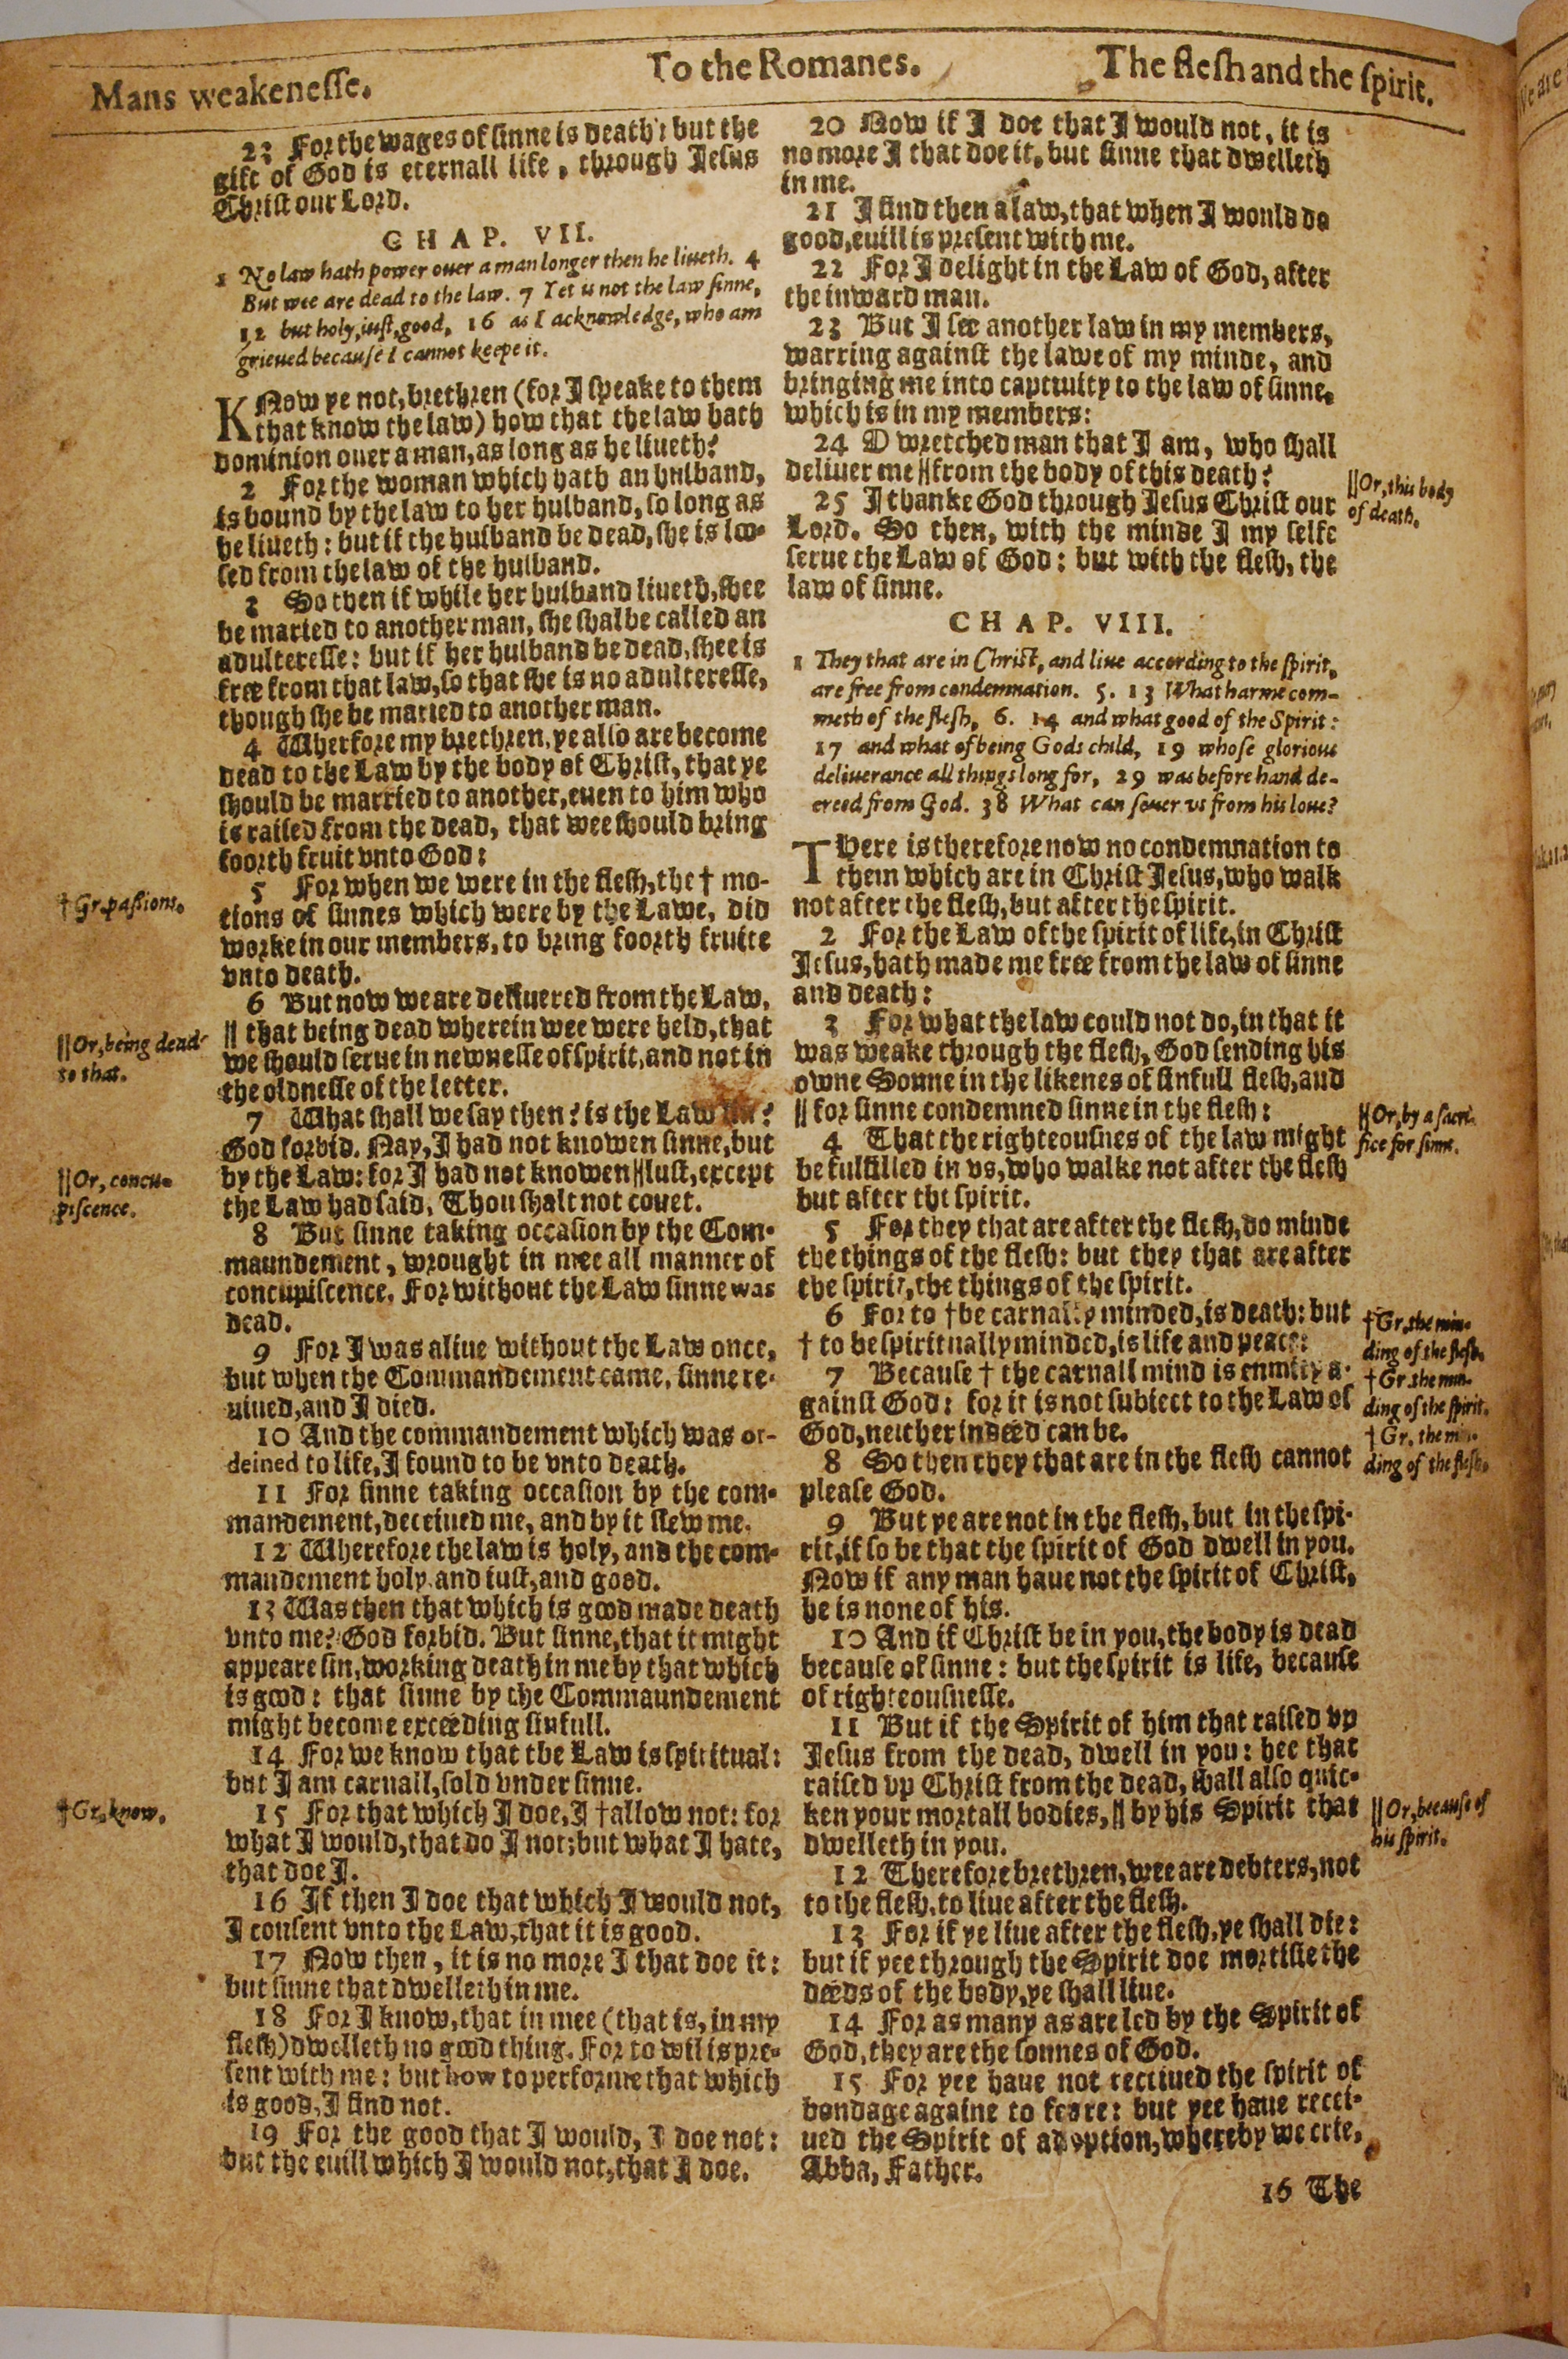 Mans weakenesse.
To the Romanes.
The flesh and the spirit.
23 For the wages of sinne is death: but the
gift of God is eternall life, through Iesus
Christ our Lord.
CHAP. VII.
1 No law hath power ouer a man longer then he liueth. 4
But wee are dead to the law. 7 Yet is not the law sinne,
12 but holy, iust, good, 16 as I acknowledge, who am
grieued because I cannot keepe it.
KNow ye not, brethren (for I speake to them
that know the law) how that the law hath
dominion ouer a man, as long as he liueth?
2 For the woman which hath an husband,
is bound by the law to her husband, so long as
he liueth: but if the husband be dead, she is loo-
sed from the law of the husband.
3 So then if while her husband liueth, shee
be maried to another man, she shalbe called an
adulteresse: but if her husband be dead, shee is
free from that law, so that she is no adulteresse,
though she be maried to another man.
4 Wherfore my brethren, ye also are become
dead to the Law by the body of Christ, that ye
should be married to another, euen to him who
is raised from the dead, that wee should bring
foorth fruit vnto God:
5 For when we were in the flesh, the † mo-
tions of sinnes which were by the Lawe, did
worke in our members, to bring foorth fruite
vnto death.
6 But now we are deliuered from the Law,
|| that being dead wherein wee were held, that
we should serue in newnesse of spirit, and not in
the oldnesse of the letter.
7 What shall we say then? is the Law sin?
God forbid. Nay, I had not knowen sinne, but
by the Law: for I had not knowen || lust, except
the Law had said, Thou shalt not couet.
8 But sinne taking occasion by the Com-
maundement, wrought in mee all manner of
concupiscence. For without the Law sinne was
dead.
9 For I was aliue without the Law once,
but when the Commandement came, sinne re-
uiued, and I died.
10 And the commandement which was or-
deined to life, I found to be vnto death.
11 For sinne taking occasion by the com-
mandement, deceiued me, and by it slew me.
12 Wherefore the law is holy, and the com-
maundement holy, and iust, and good.
13 Was then that which is good made death
vnto me? God forbid. But sinne, that it might
appeare sin, working death in me by that which
is good: that sinne by the Commaundement
might become exceeding sinfull.
14 For we know that the Law is spiritual:
but I am carnall, sold vnder sinne.
15 For that which I doe, I † allow not: for
what I would, that do I not; but what I hate,
that doe I.
16 If then I doe that which I would not,
I consent vnto the Law, that it is good.
17 Now then, it is no more I that doe it:
but sinne that dwelleth in me.
18 For I know, that in mee (that is, in my
flesh) dwelleth no good thing. For to wil is pre-
sent with me: but how to performe that which
is good, I find not.
19 For the good that I would, I doe not:
but the euill which I would not, that I doe.
† Gr. passions.
|| Or, being dead
to that.
|| Or, concu-
piscence.
† Gr. know.
20 Now if I doe that I would not, it is
no more I that doe it, but sinne that dwelleth
in me.
21 I find then a law, that when I would do
good, euill is present with me.
22 For I delight in the Law of God, after
the inward man.
23 But I see another law in my members,
warring against the lawe of my minde, and
bringing me into captiuity to the law of sinne,
which is in my members:
24 O wretched man that I am, who shall
deliuer me || from the body of this death?
25 I thanke God through Iesus Christ our
Lord. So then, with the minde I my selfe
serue the Law of God: but with the flesh, the
law of sinne.
CHAP. VIII.
1 They that are in Christ, and liue according to the spirit,
are free from condemnation. 5. 13 What harme com-
meth of the flesh, 6. 14 and what good of the Spirit:
17 and what of being Gods child, 19 whose glorious
deliuerance all things long for, 29 was before hand de-
creed from God. 38 What can seuer vs from his loue?
THere is therefore now no condemnation to
them which are in Christ Iesus, who walk
not after the flesh, but after the spirit.
2 For the Law of the spirit of life, in Christ
Iesus, hath made me free from the law of sinne
and death:
3 For what the law could not do, in that it
was weake through the flesh, God sending his
owne Sonne in the likenes of sinfull flesh, and
|| for sinne condemned sinne in the flesh:
4 That the righteousnes of the law might
be fulfilled in vs, who walke not after the flesh
but after the spirit.
5 For they that are after the flesh, do minde
the things of the flesh: but they that are after
the spirit, the things of the spirit.
6 For to † be carnally minded, is death: but
† to be spiritually minded, is life and peace:
7 Because † the carnall mind is enmity a-
gainst God: for it is not subiect to the Law of
God, neither indeed can be.
8 So then they that are in the flesh cannot
please God.
9 But ye are not in the flesh, but in the spi-
rit, if so be that the spirit of God dwell in you.
Now if any man haue not the spirit of Christ,
he is none of his.
10 And if Christ be in you, the body is dead
because of sinne: but the spirit is life, because
of righteousnesse.
11 But if the Spirit of him that raised vp
Iesus from the dead, dwell in you: hee that
raised vp Christ from the dead, shall also quic-
ken your mortall bodies, || by his Spirit that
dwelleth in you.
12 Therefore brethren, wee are debters, not
to the flesh, to liue after the flesh.
13 For if ye liue after the flesh, ye shall die:
but if yee through the Spirit doe mortifie the
deeds of the body, ye shall liue.
14 For as many as are led by the Spirit of
God, they are the sonnes of God.
15 For yee haue not receiued the spirit of
bondage againe to feare: but yee haue recei-
ued the Spirit of adoption, whereby we crie,
Abba, Father.
16 The
|| Or, this body
of death.
|| Or, by a sacri-
fice for sinne.
† Gr. the min-
ding of the flesh.
† Gr. the min-
ding of the spirit.
† Gr. the min-
ding of the flesh.
|| Or, because of
his spirit.